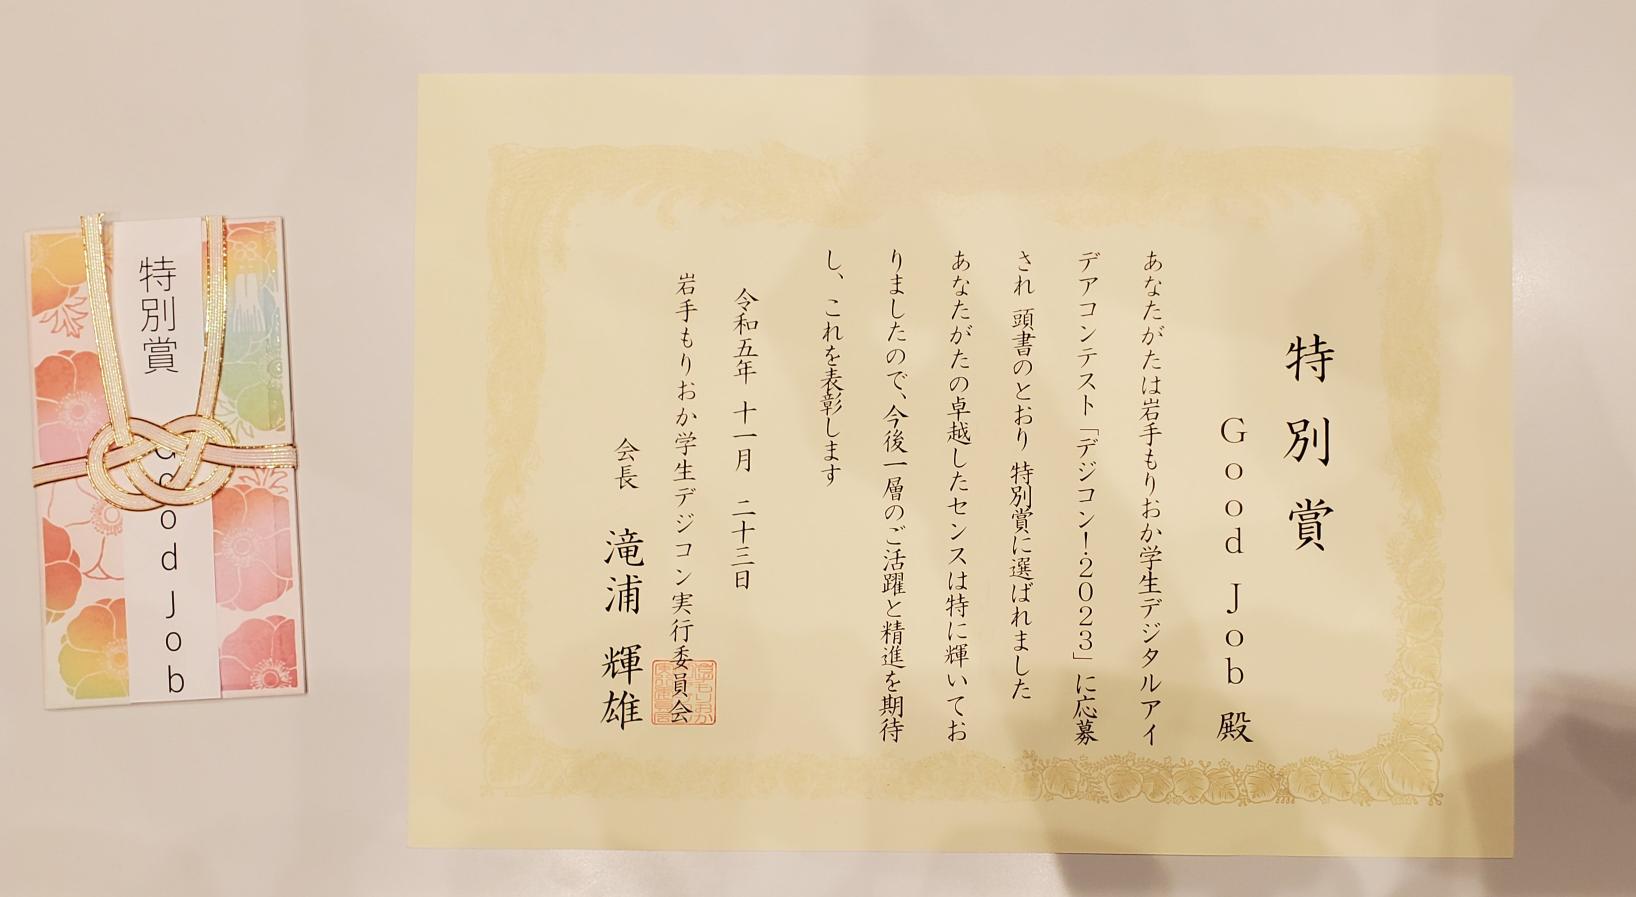 特別賞
Good Job 殿
あなたがたは岩手もりおか学生デジタルアイ
デアコンテスト「デジコン！２０２３」に応募
され 頭書のとおり 特別賞に選ばれました
あなたがたの卓越したセンスは特に輝いてお
りましたので、今後一層のご活躍と精進を期待
し、これを表彰します
令和五年 十一月 二十三日
岩手もりおか学生デジコン実行委員会
会長 滝浦 輝雄
特別賞
Good Job